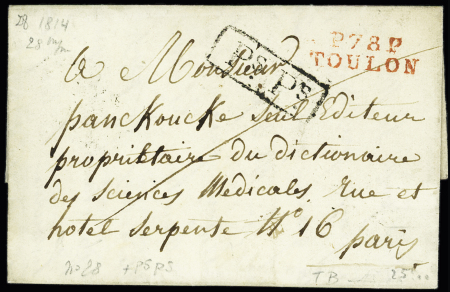 1814
28
P78P
TOULON
PS.PS
a Monsieur
panckoucke seul Editeur
proprittaire du dictionaire
des sciences Médicales, rue et
hotel serpente No 16
paris
no 28 + PS PS
TB
25